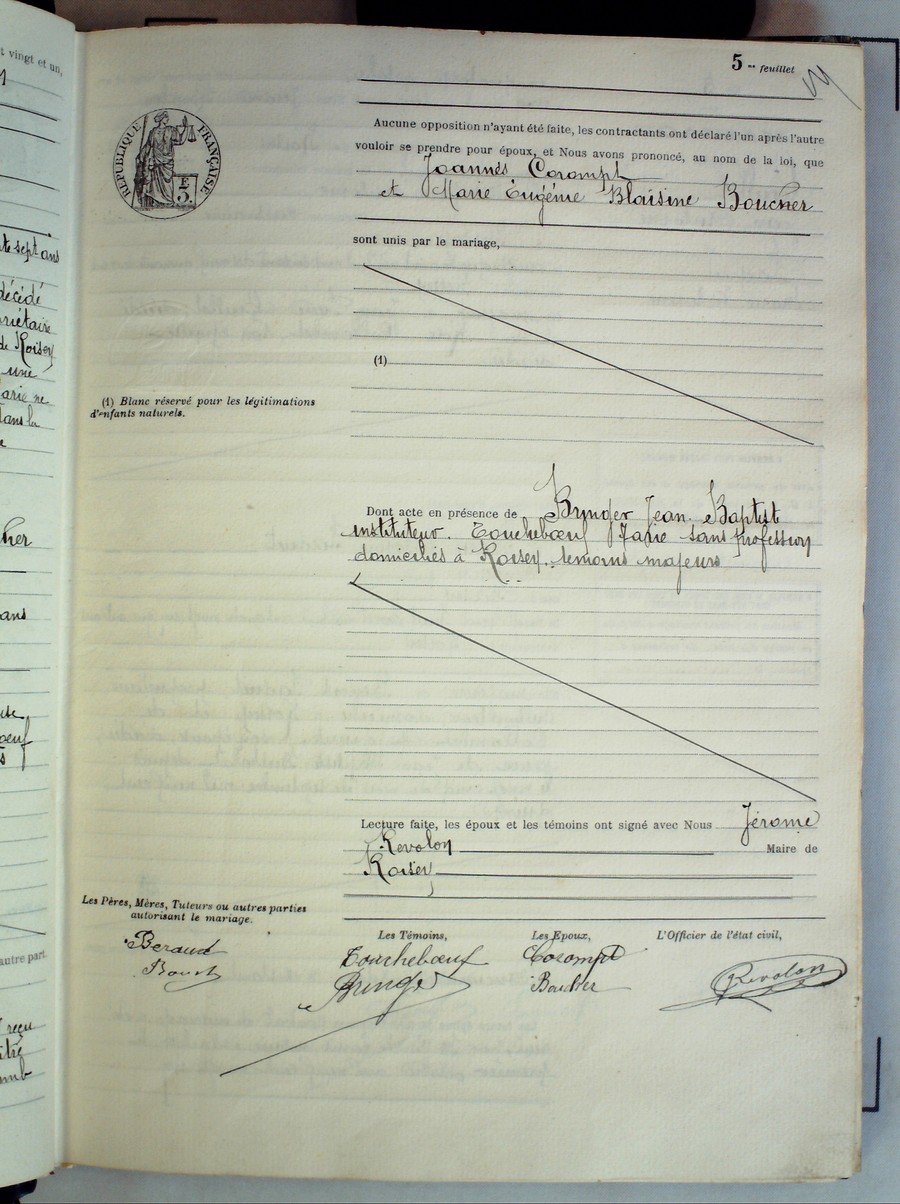 t vingt et un,
te sept ans
décédé
priétaire
de Roisey
une
arie ne
dans la
cher
ans
oeuf
autre part.
reçu
5me feuillet
RÉPUBLIQUE FRANÇAISE
F
3.
Aucune opposition n'ayant été faite, les contractants ont déclaré l'un après l'autre
vouloir se prendre pour époux, et Nous avons prononcé, au nom de la loi, que
Joannès Corompt
et Marie Eugénie Blaisine Boucher
sont unis par le mariage,
(1)
(1) Blanc réservé pour les légitimations
d'enfants naturels.
Dont acte en présence de Bringer Jean Baptist
instituteur. Toucheboeuf sans profession
domiciliés à Roisey. témoins majeurs
Lecture faite, les époux et les témoins ont signé avec Nous Jérome
Revolon Maire de
Roisey
Les Pères, Mères, Tuteurs ou autres parties
autorisant le mariage.
Les Témoins,
Les Epoux,
L'Officier de l'état civil,
Beraud
Toucheboeuf
Corompt
Bringer
Boucher
Revolon